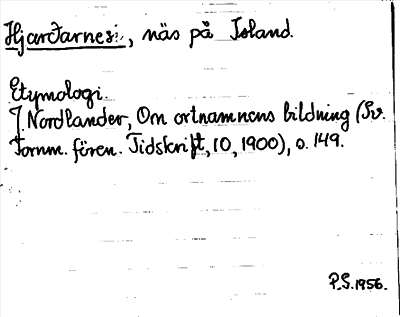 Hjarðarnesi, näs på Island.
Etymologi.
J. Nordlander, Om ortnamnens bildning (Sv.
Fornm. fören. Tidskrift, 10, 1900), s. 149.
P.S. 1956.